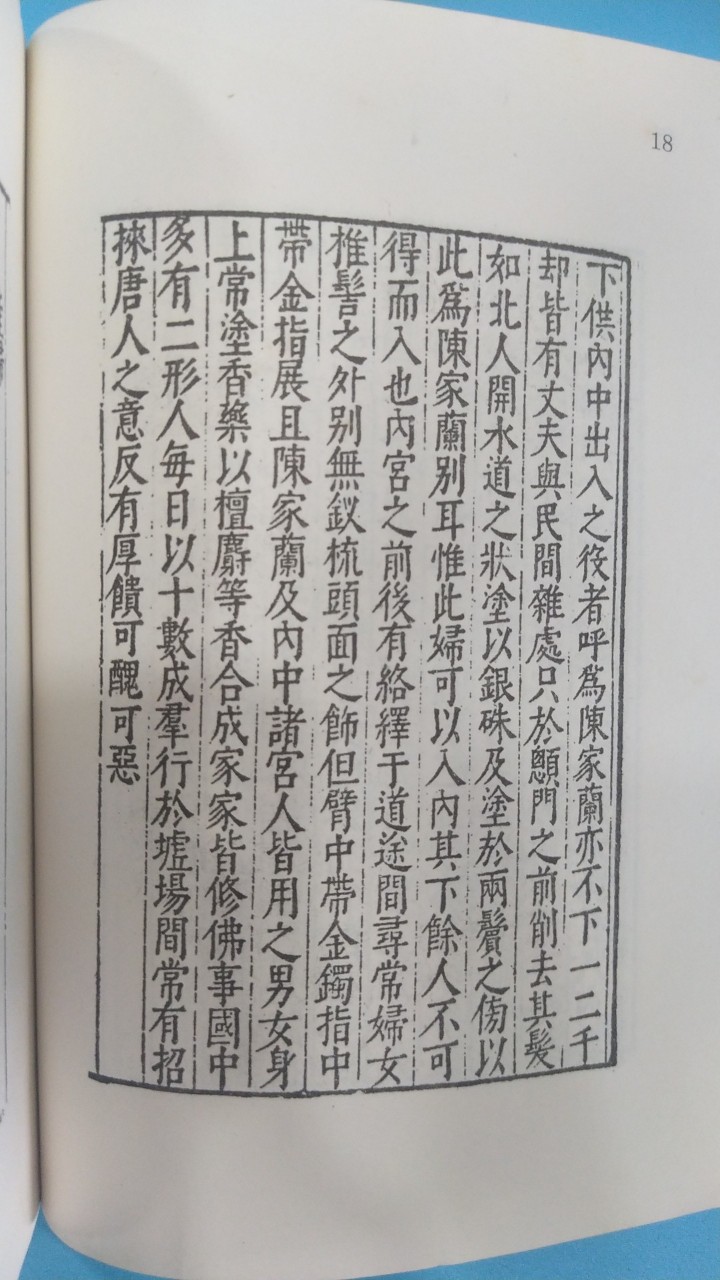 18
下供內中出入之役者呼爲陳家蘭亦不下一二千
却皆有丈夫與民間雜處只於顖門之前削去其髮
如北人開水道之狀塗以銀硃及塗於兩鬢之傍以
此爲陳家蘭別耳惟此婦可以入內其下餘人不可
得而入也內宮之前後有絡繹于道途間尋常婦女
椎髻之外別無釵梳頭面之飾但臂中帶金鐲指中
帶金指展且陳家蘭及內中諸宮人皆用之男女身
上常塗香藥以檀麝等香合成家家皆修佛事國中
多有二形人每日以十數成羣行於墟場間常有招
揀唐人之意反有厚饋可醜可惡